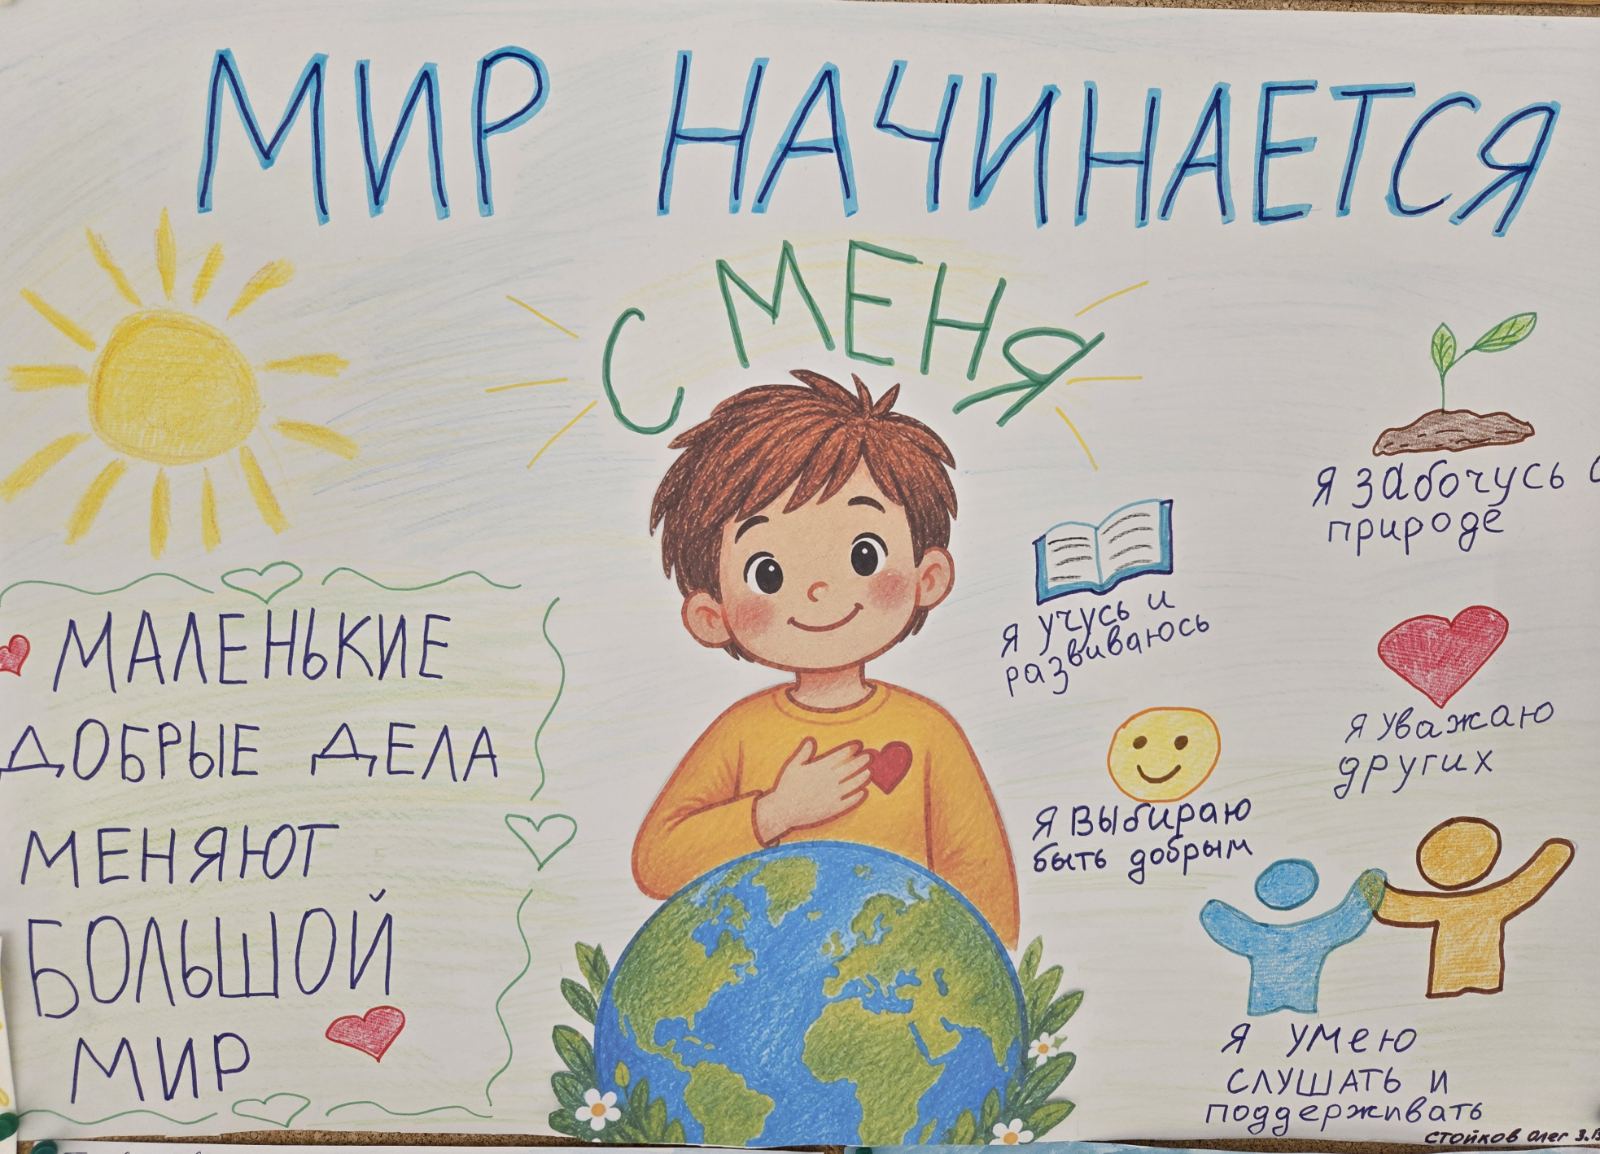 МИР НАЧИНАЕТСЯ
С МЕНЯ
МАЛЕНЬКИЕ
ДОБРЫЕ ДЕЛА
МЕНЯЮТ
БОЛЬШОЙ
МИР
Я забочусь о
природе
Я учусь и
развиваюсь
Я уважаю
других
Я выбираю
быть добрым
Я умею
слушать и
поддерживать
Стойков Олег 3.